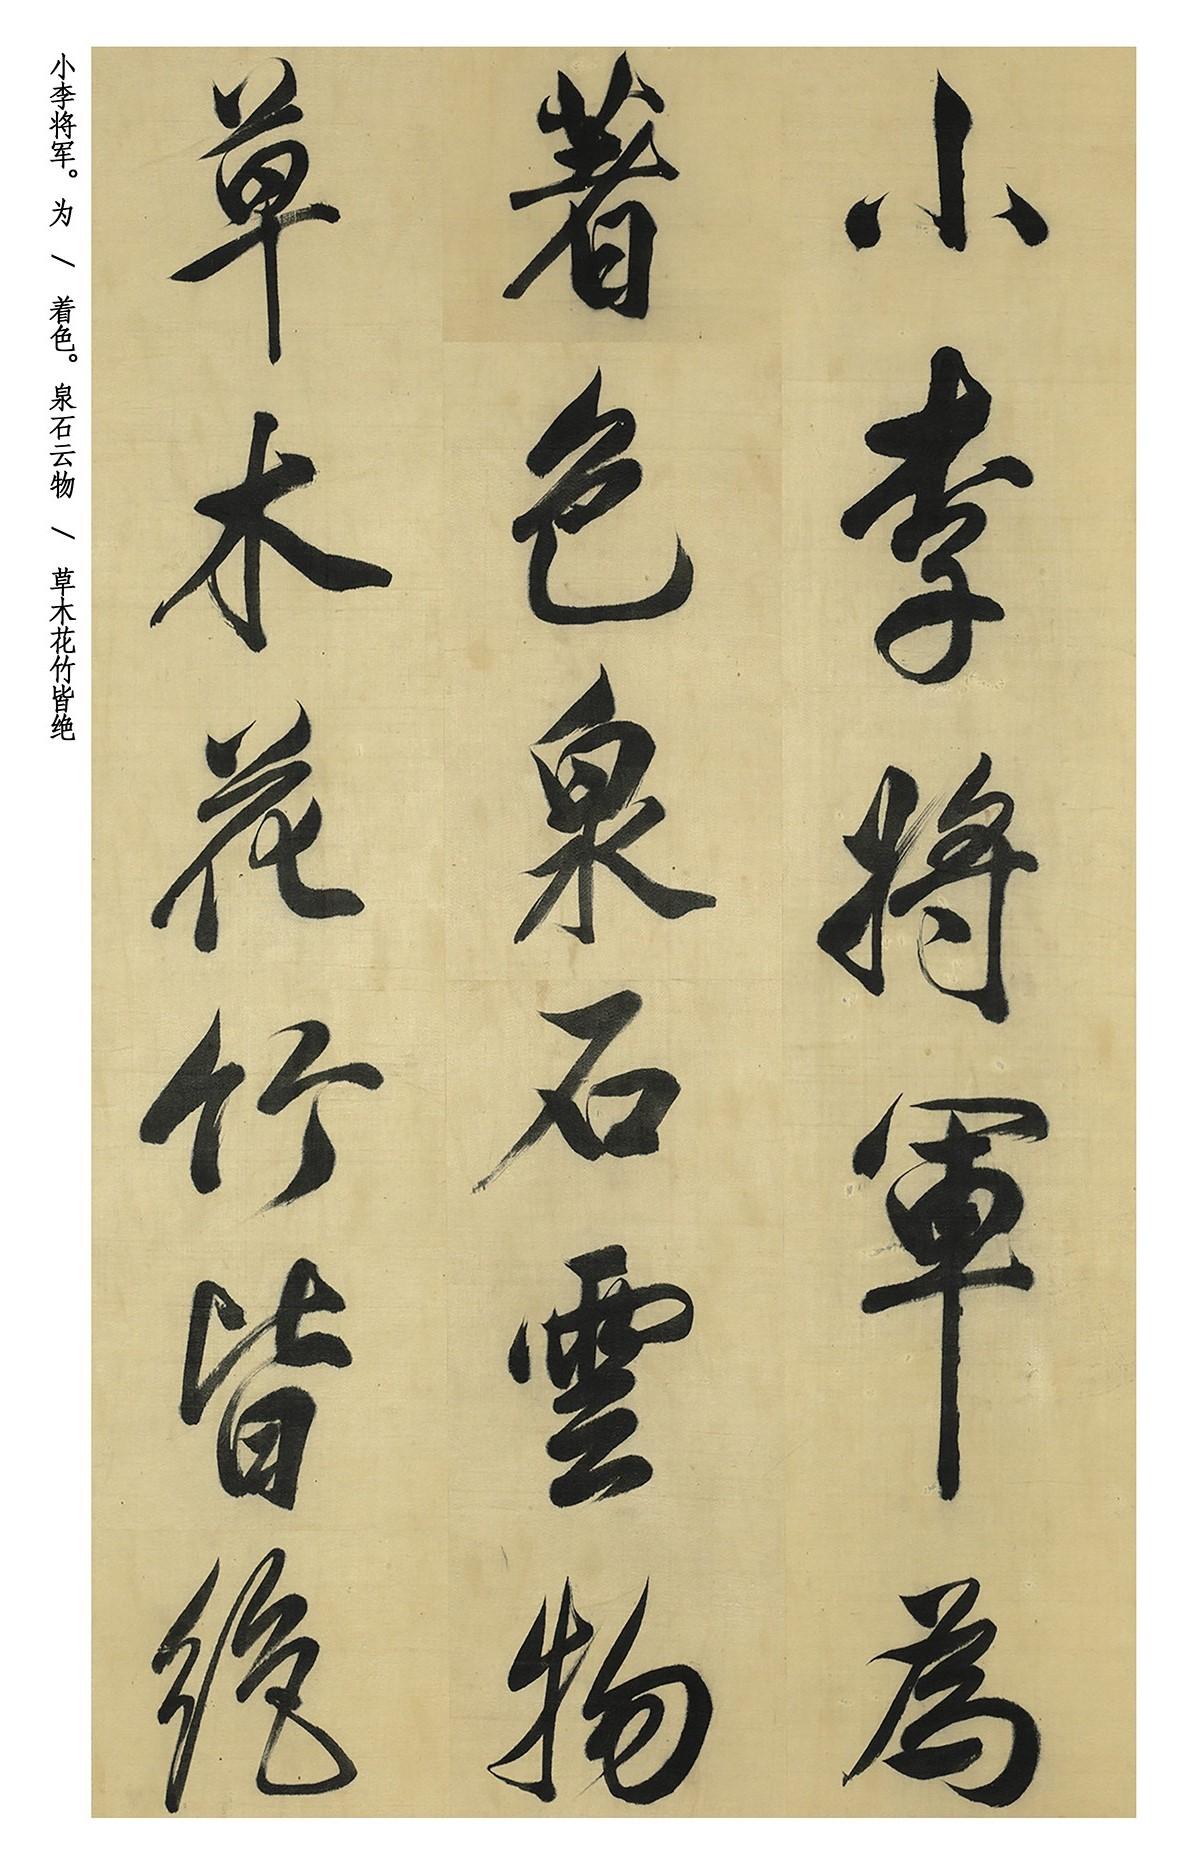 小李將軍為
著色泉石雲物
草木花竹皆絶
小李将军。为 / 着色。泉石云物 / 草木花竹皆绝